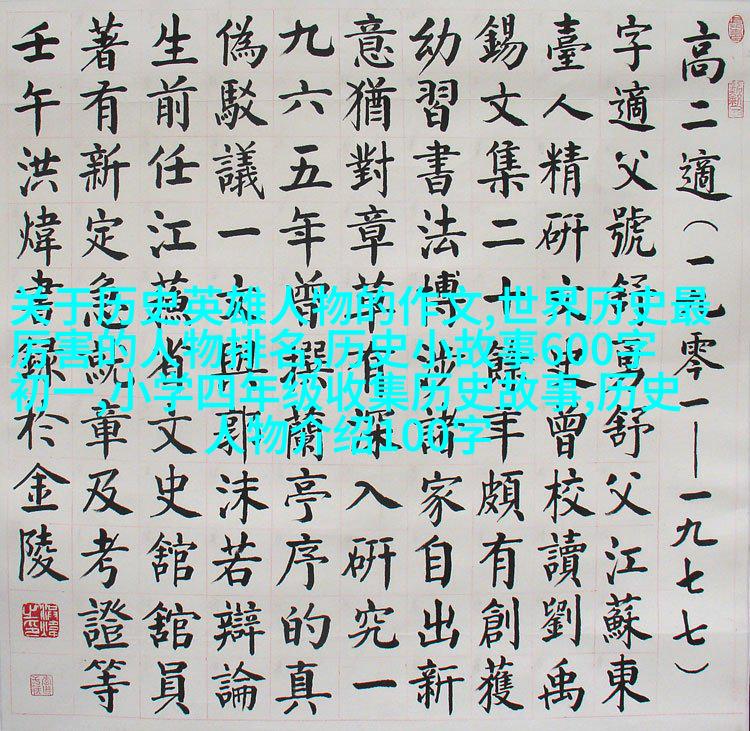 高二適（一九零一——一九七七）
字適父號舒寓舒父江蘇東
臺人精研文史曾校讀劉禹
錫文集二十餘年頗有創獲
幼習書法博涉諸家自出新
意猶對章草有深入研究一
九六五年曾撰蘭亭序的真
偽駁議一文與郭沫若辯論
生前任江蘇省文史舘舘員
著有新定急就章及考證等
壬午洪煒書錄於金陵
关于历史英雄人物的作文,世界历史最
厉害的人物排名,历史小故事600字
初一,小学四年级收集历史故事,历史
人物介绍100字